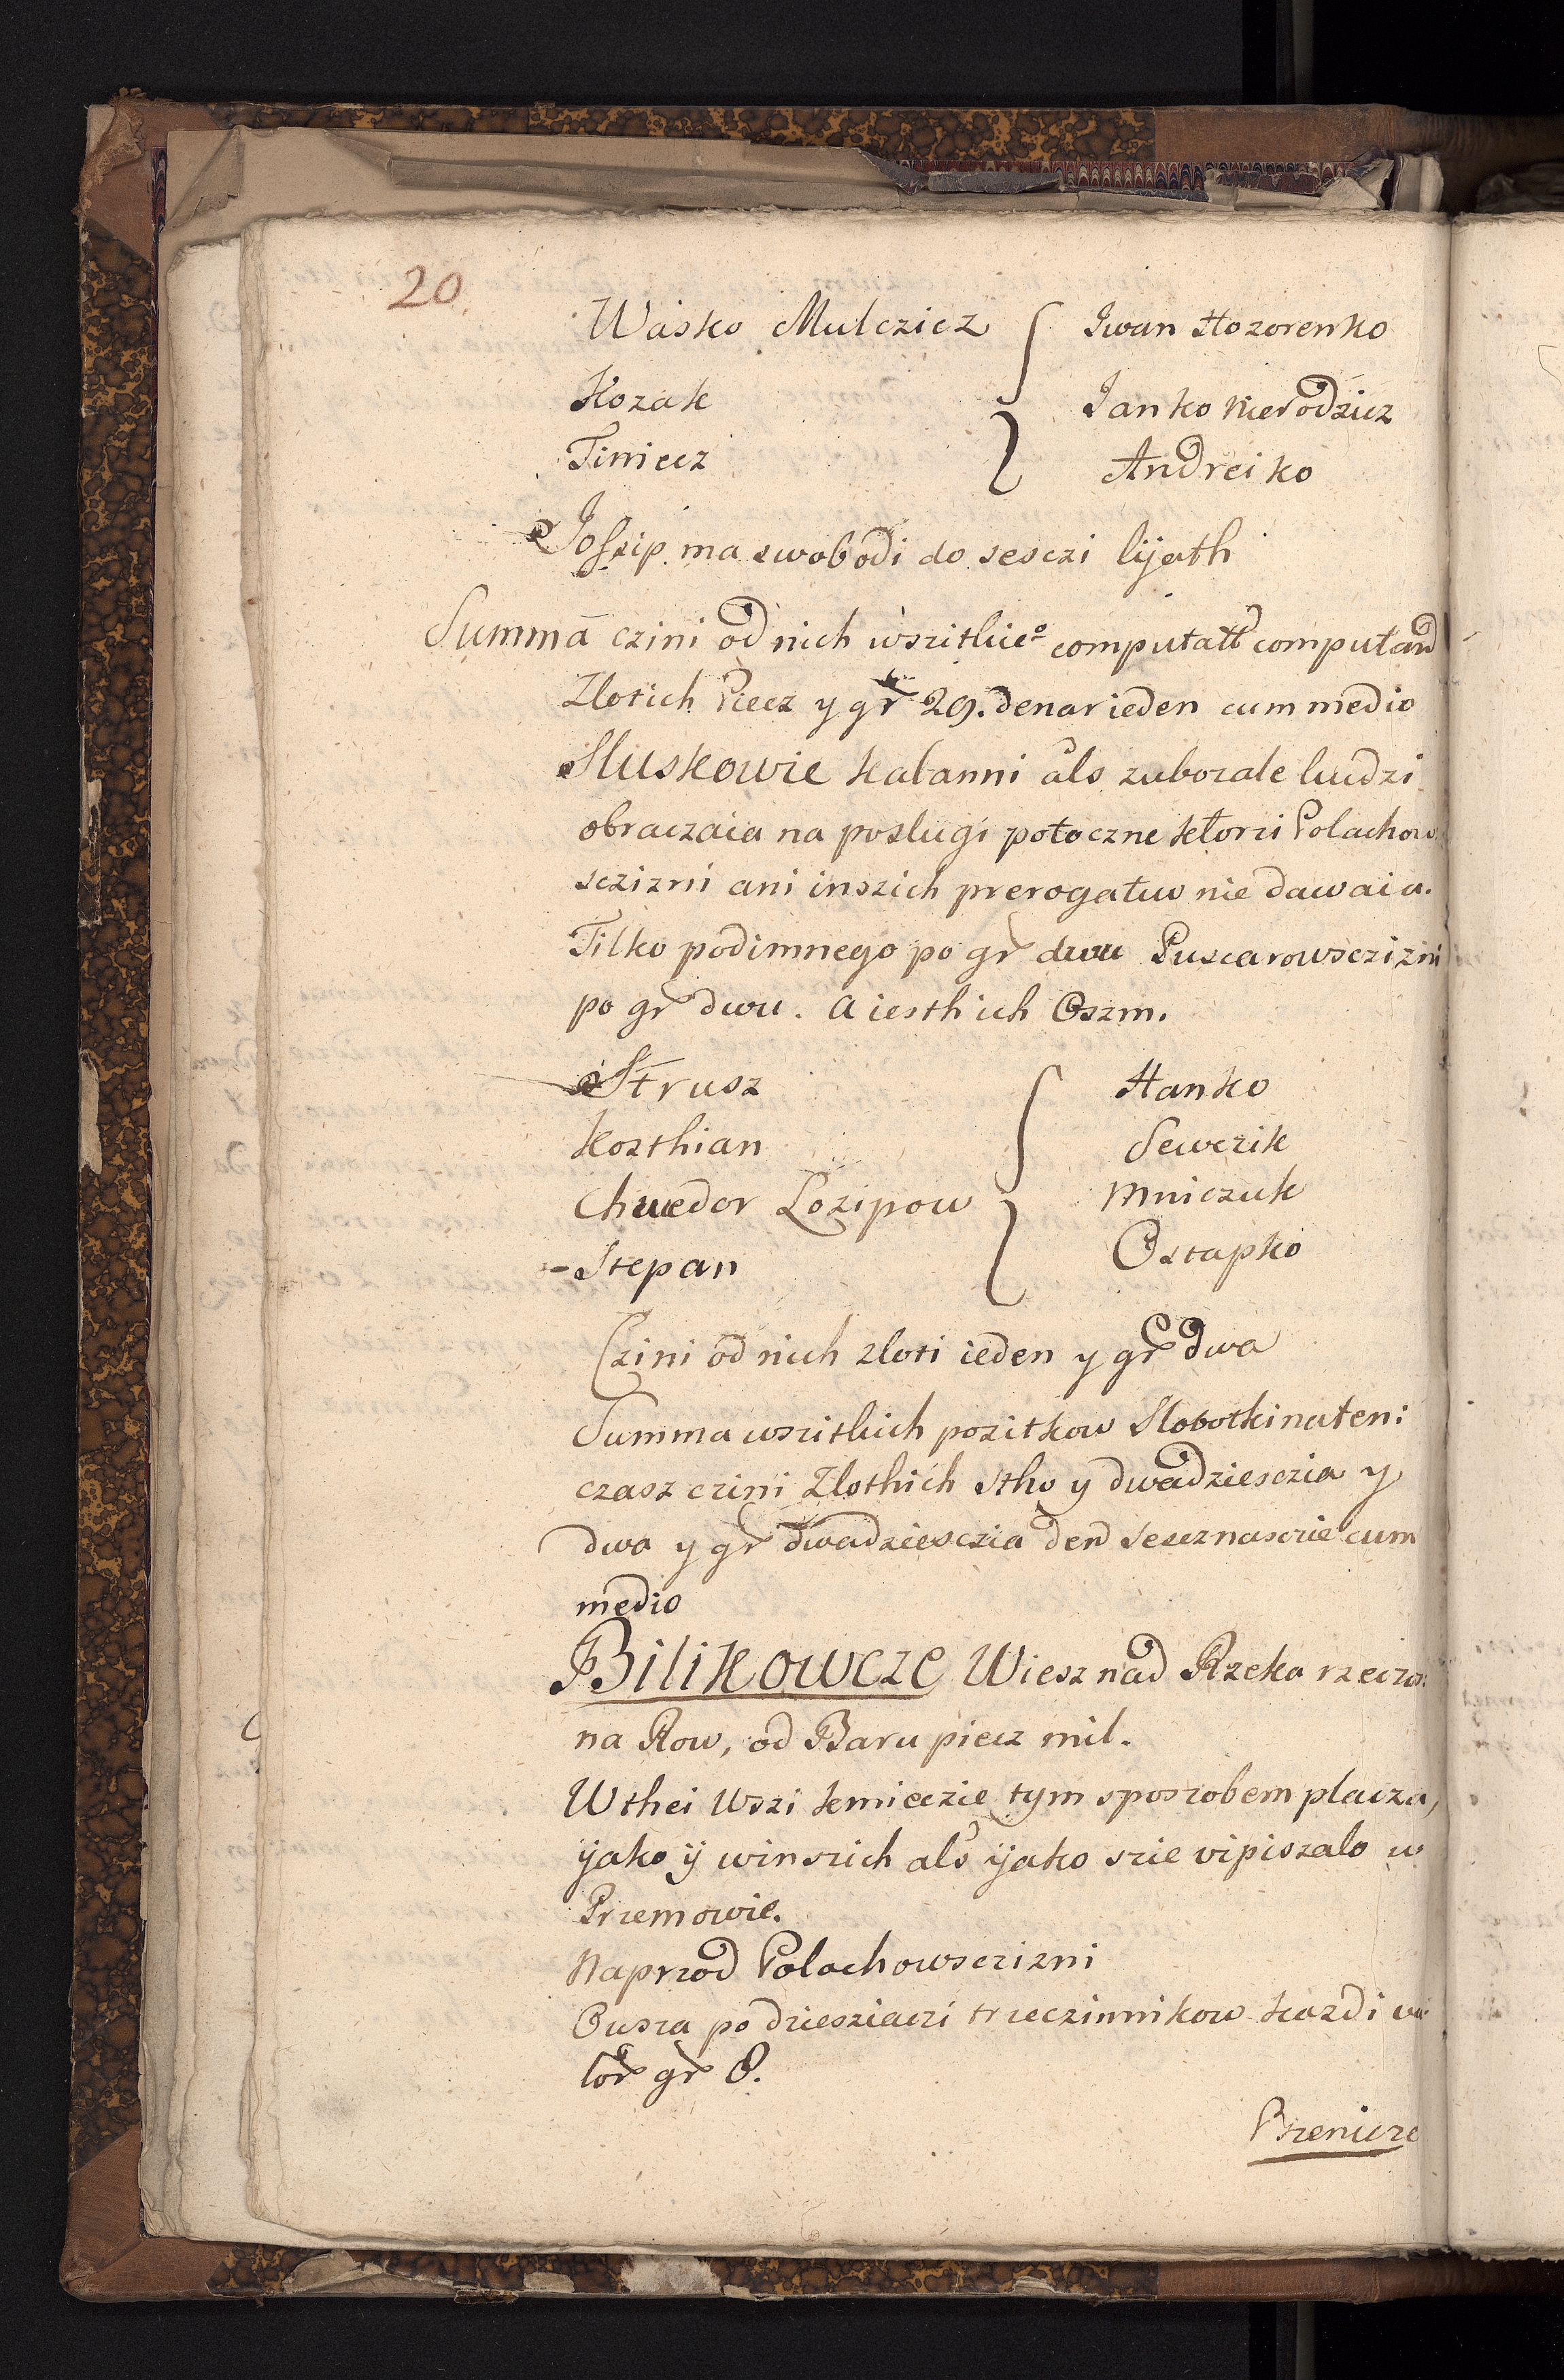 20.
Wasko Mulczicz Iwan Hozorenko
Kozak Ianko Nierodzicz
Timiecz Andreiko
Iossip ma swobodi do sesczi lijath
Summa czini od nich wszitkieº computatt computand
Zlotich Piecz y gr 29. denar ieden cum medio
Sluskowie Kalanni als zubozale ludzi
obraczaia na poslugi potoczne ktorzi Polachow
sczizni ani inszich prerogatiw nie dawaia.
Tilko podimnego po gr dwu Puscarowsczizni
po gr dwu. A iesth ich Oszm.
Strusz Hanko
Kosthian Sewczik
Chwedor Lozipow Mniczuk
Stepan Ostapko
Czini od nich zloti ieden y gr dwa
Summa wszitkich pozitkow Slobotki na ten:
czasz czini Zlothich stho y dwadziesczia y
dwa y gr dwadziesczia den sesznascie cum
medio
Bilikowcze Wiesz nad Rzeka rzeczo:
na Row, od Baru piecz mil.
W thei Wszi kmieczie tym sposzobem placza,
ijako ij winszich als ijako szie vipiszalo w
Przemowie.
Naprzod Polachowsczizni
Owsza po dziesziaczi trzeczinnikow kazdi va
lor gr 8.
Pszenicze